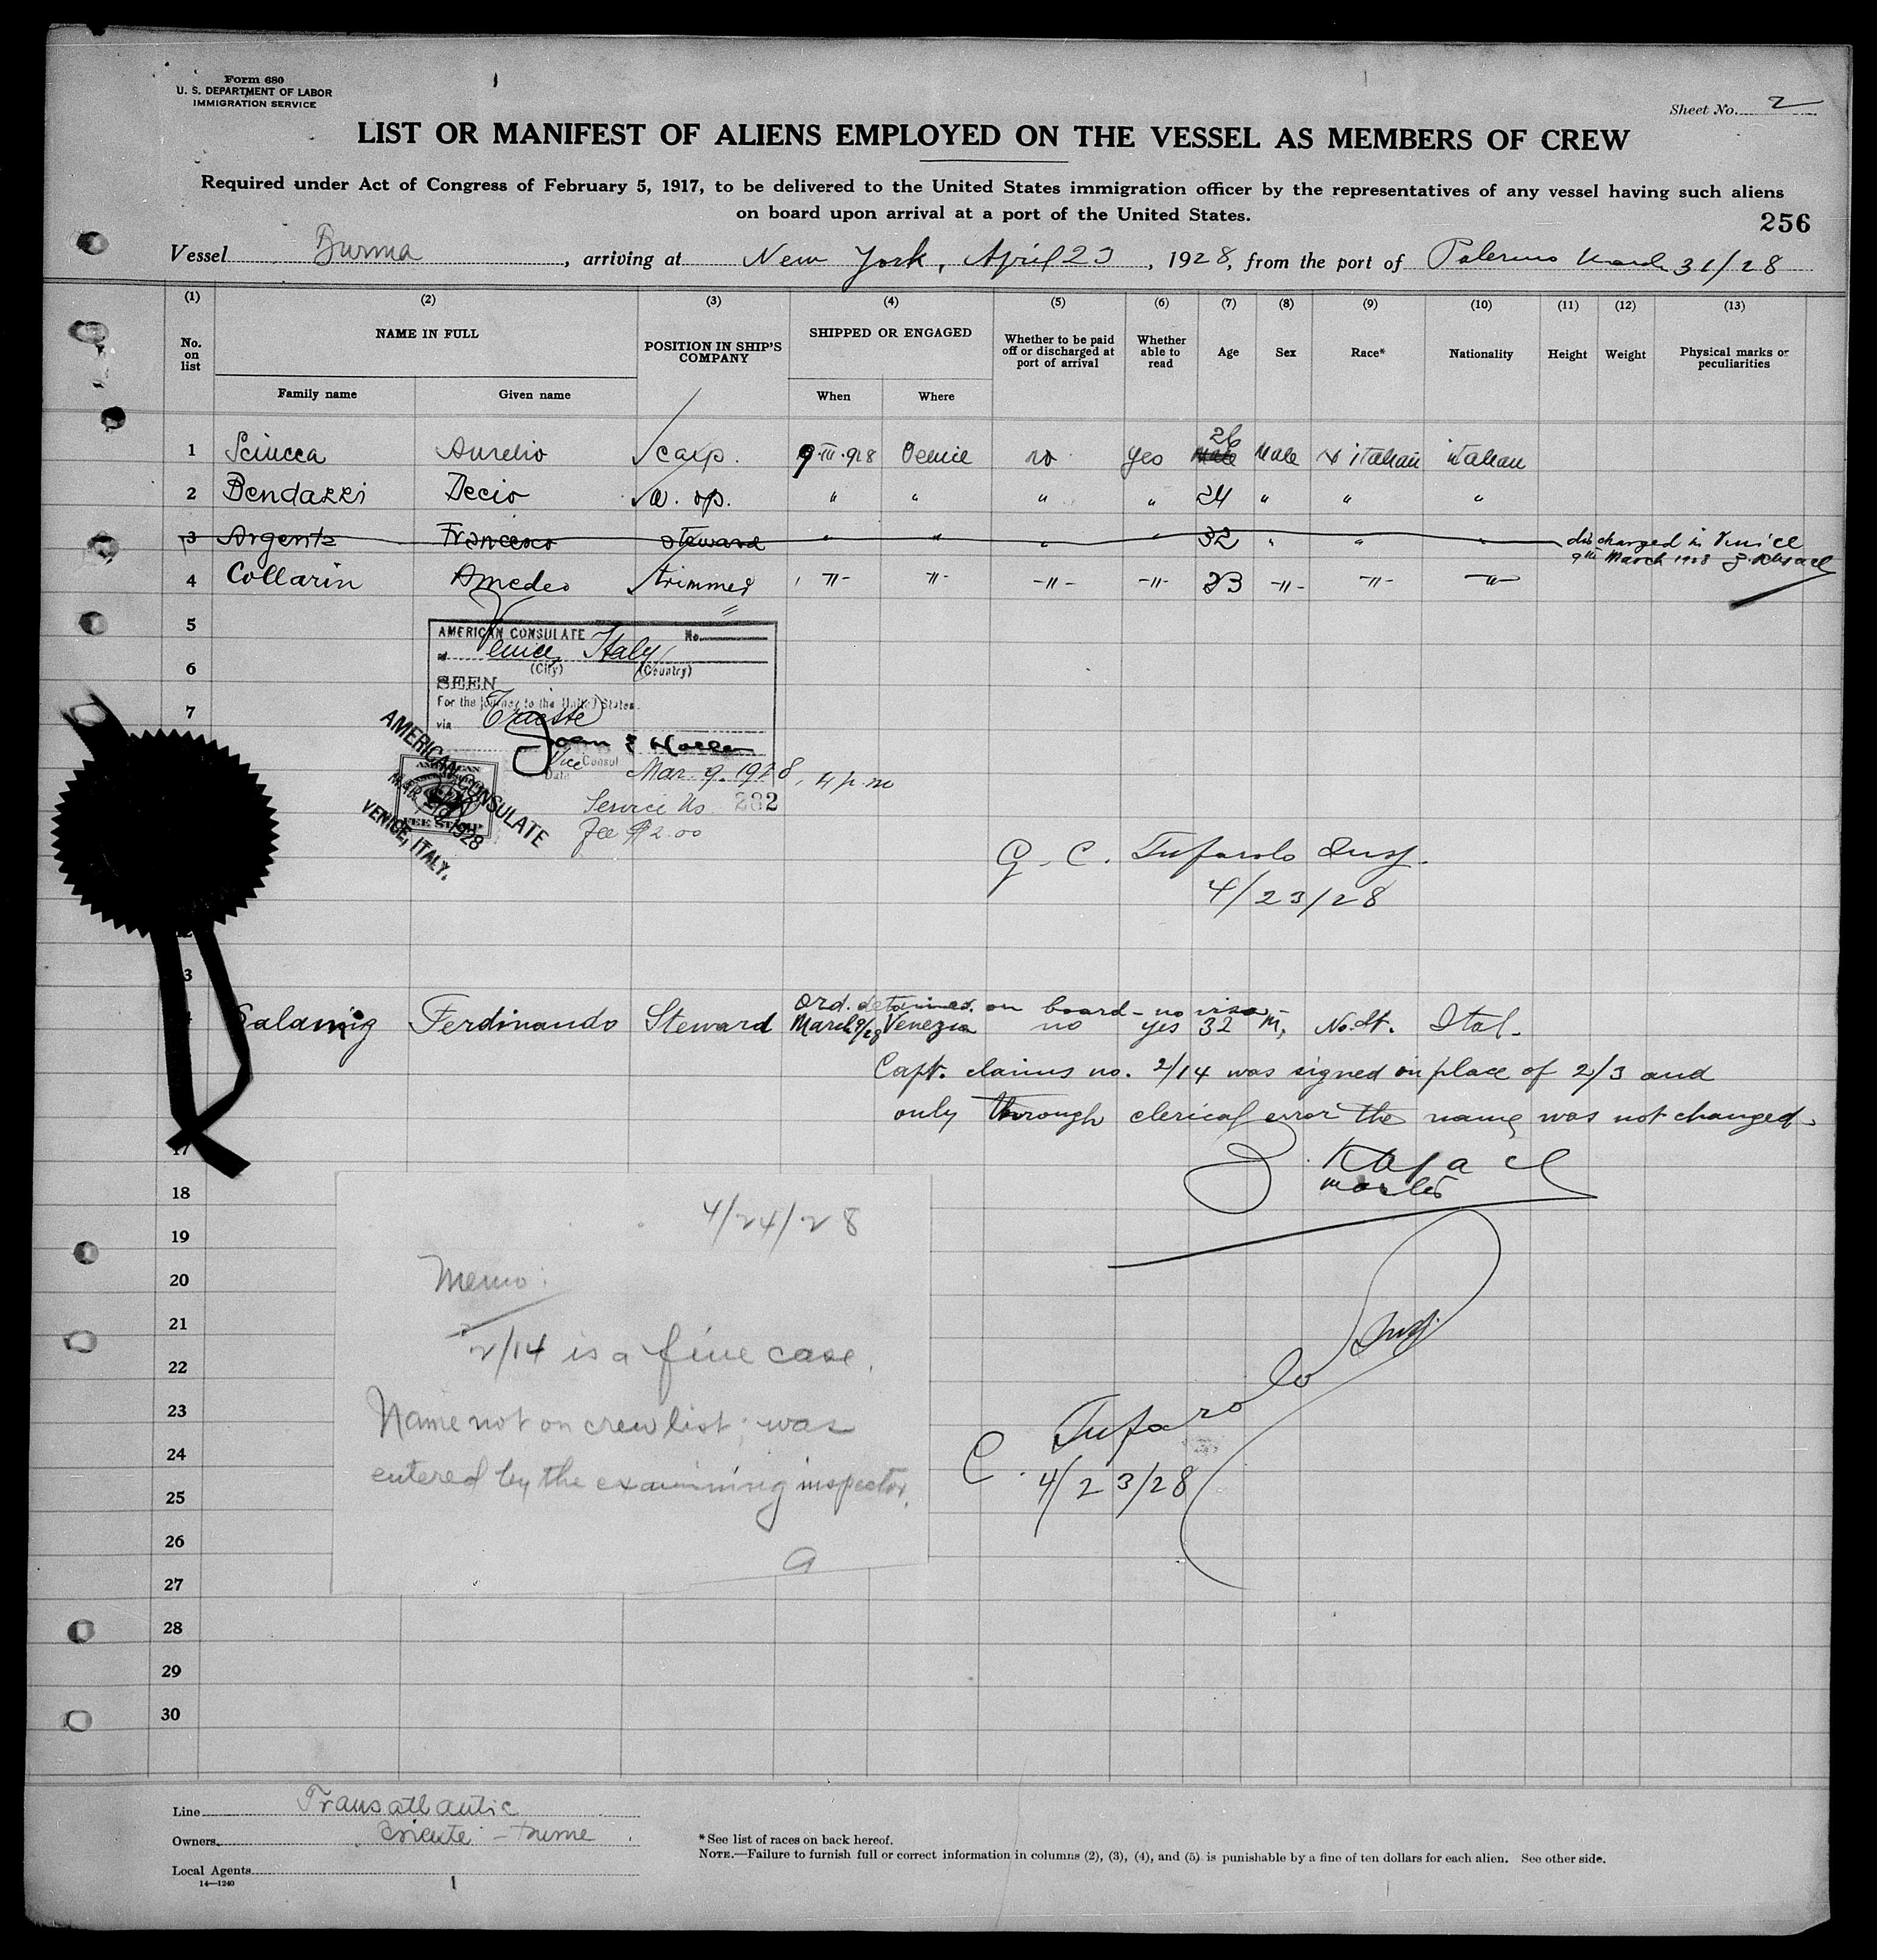 Form 680
U. S. DEPARTMENT OF LABOR
IMMIGRATION SERVICE
Sheet No. 2
LIST OR MANIFEST OF ALIENS EMPLOYED ON THE VESSEL AS MEMBERS OF CREW
Required under Act of Congress of February 5, 1917, to be delivered to the United States immigration officer by the representatives of any vessel having such aliens
on board upon arrival at a port of the United States.
256
Vessel Burma, arriving at New York, April 23, 1928, from the port of Palermo March 31/28
(1) (2) (3) (4) (5) (6) (7) (8) (9) (10) (11) (12) (13)
No. on list NAME IN FULL POSITION IN SHIP'S COMPANY SHIPPED OR ENGAGED Whether to be paid off or discharged at port of arrival Whether able to read Age Sex Race* Nationality Height Weight Physical marks or peculiarities
Family name Given name When Where
1 Sciucca Aurelio carp. 9·III·928 Venice no yes 26 Male N italian italian
2 Bendazzi Decio w. op. " " " " 24 " " "
3 Argenti Francesco steward " " " " 32 " " " discharged in Venice
9th March 1928
4 Collarin Amedeo trimmer -"- -"- -"- -"- 23 -"- -"- -"-
5
AMERICAN CONSULATE No.
at Venice, Italy
(City) (Country)
6
SEEN
For the journey to the United States.
7
via Trieste
Vice Consul
Date Mar. 9. 1928, 4 p.m
Service No 282
Fee $2.00
AMERICAN CONSULATE
MAR 10 1928
VENICE, ITALY.
AMERICAN
FEE STAMP
G. C. Tufarolo Insp.
4/23/28
3
Ord. detained on board - no visa -
4 Salamig Ferdinando Steward March 9/28 Venezia no yes 32 M, No. It. Ital.
Capt. claims no. 2/14 was signed in place of 2/3 and
only through clerical error the name was not changed.
17
master
18
19
20
21
22
23
24
25
26
27
28
29
30
4/24/28
Memo:
2/14 is a fine case.
Name not on crew list; was
entered by the examining inspector.
a
C. Tufarolo Insp.
4/23/28
Line Transatlantic
Owners
Local Agents
14—1240
*See list of races on back hereof.
NOTE.—Failure to furnish full or correct information in columns (2), (3), (4), and (5) is punishable by a fine of ten dollars for each alien. See other side.